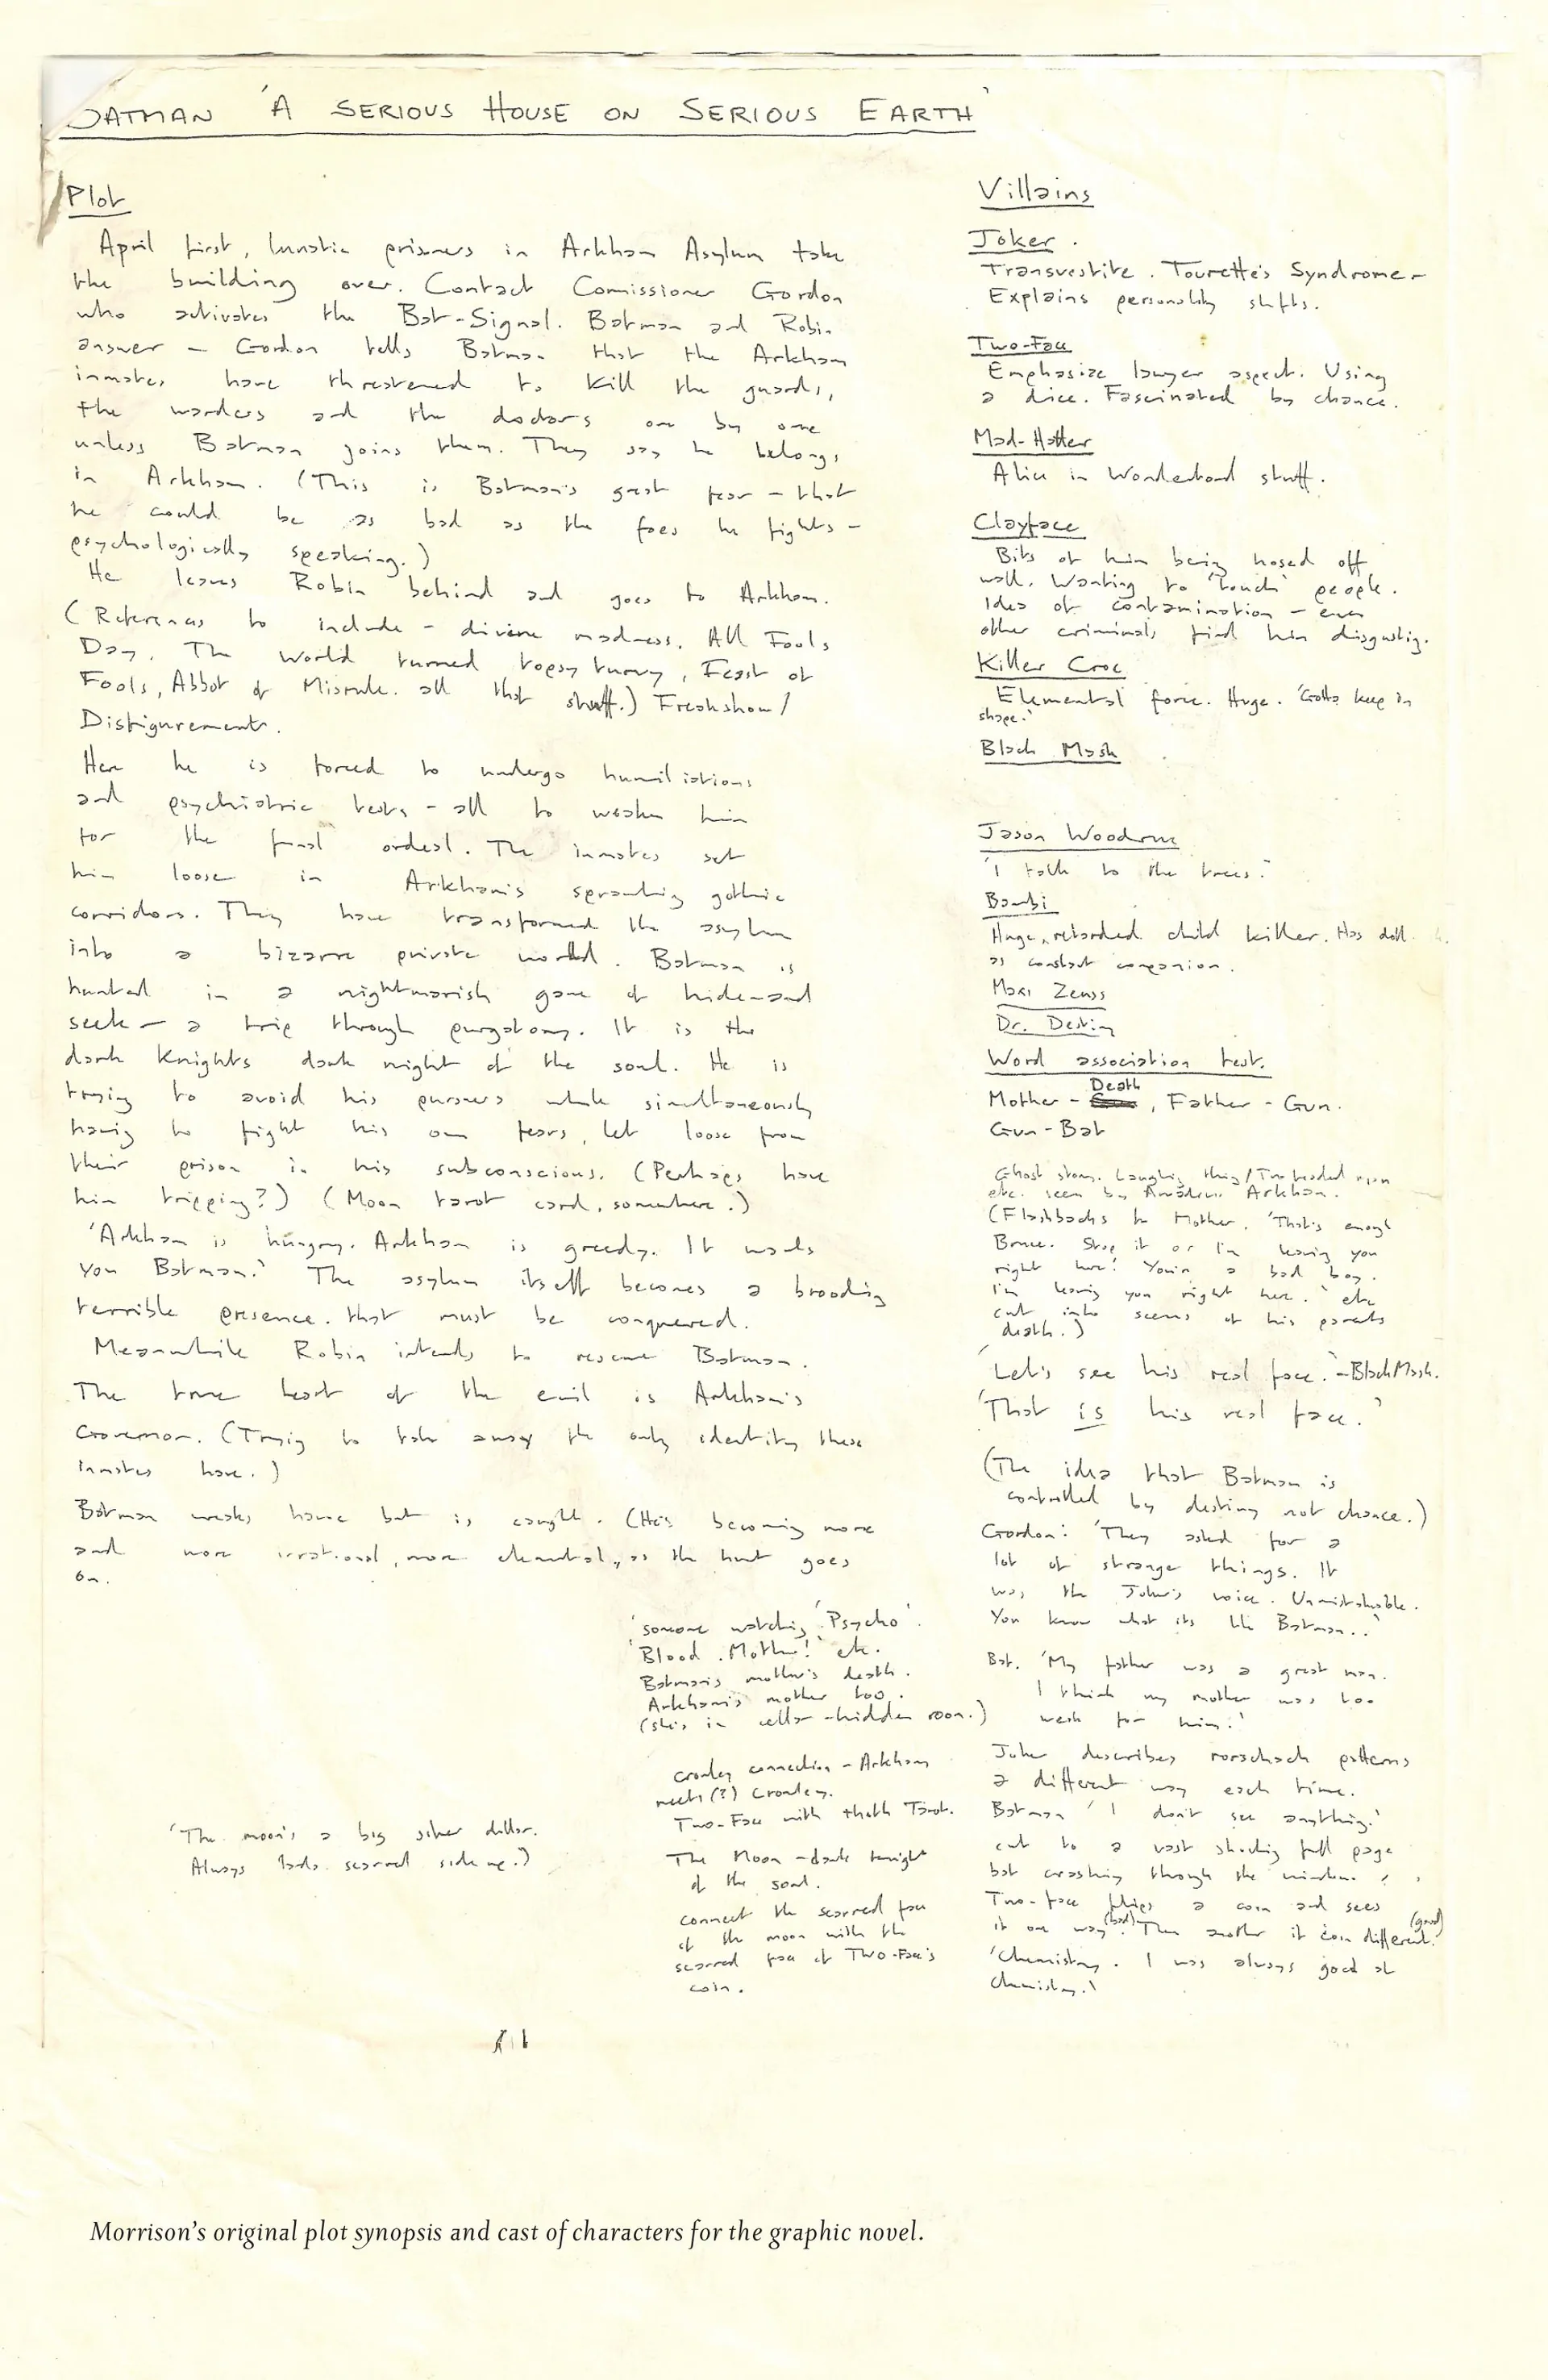 BATMAN 'A SERIOUS HOUSE ON SERIOUS EARTH'
Plot
April first, lunatic prisoners in Arkham Asylum take
the building over. Contact Comissioner Gordon
who activates the Bat-Signal. Batman and Robin
answer – Gordon tells Batman that the Arkham
inmates have threatened to kill the guards,
the warders and the doctors one by one
unless Batman joins them. They say he belongs
in Arkham. (This is Batman's great fear – that
he could be as bad as the foes he fights –
psychologically speaking.)
He leaves Robin behind and goes to Arkham.
(References to include – divine madness. All Fools
Day. The World turned topsy turvy, Feast of
Fools, Abbot of Misrule. all that stuff.) Freakshow/
Disfigurement.
Here he is forced to undergo humiliations
and psychiatric tests – all to weaken him
for the final ordeal. The inmates set
him loose in Arkham's sprawling gothic
corridors. They have transformed the asylum
into a bizarre private world. Batman is
hunted in a nightmarish game of hide-and
seek – a trip through purgatory. It is the
dark Knights dark night of the soul. He is
trying to avoid his pursuers while simultaneously
having to fight his own fears, let loose from
their prison in his subconscious. (Perhaps have
him tripping?) (Moon tarot card, somewhere.)
'Arkham is hungry. Arkham is greedy. It wants
you Batman.' The asylum itself becomes a brooding
terrible presence. that must be conquered.
Meanwhile Robin intends to rescue Batman.
The true heart of the evil is Arkham's
Governor. (Trying to take away the only identity these
inmates have.)
Batman wreaks havoc but is caught. (He's becoming more
and more irrational, more elemental, as the hunt goes
on.
'The moon's a big silver dollar.
Always lands scarred side up.')
'someone watching 'Psycho'.
'Blood. Mother!' etc.
Batman's mother's death.
Arkham's mother too.
(she's in cellar – hidden room.)
Crowley connection – Arkham
meets (?) Crowley.
Two-Face with thoth Tarot.
The Moon – dark tonight
of the soul.
connect the scarred face
of the moon with the
scarred face of Two-Face's
coin.
Villains
Joker.
Transvestite. Tourette's Syndrome –
Explains personality shifts.
Two-Face
Emphasize lawyer aspect. Using
a dice. Fascinated by chance.
Mad-Hatter
Alice in Wonderland stuff.
Clayface
Bits of him being hosed off
wall. Wanting to 'touch' people.
Idea of contamination – even
other criminals find him disgusting.
Killer Croc
Elemental force. Huge. 'Gotta keep in
shape.'
Black Mask
Jason Woodrue
'I talk to the trees.'
Bambi
Huge, retarded child killer. Has doll
as constant companion.
Maxi Zeuss
Dr. Destiny
Word association test.
Mother – Death, Father – Gun.
Gun – Bat
Ghost story. Laughing thing / Two headed man
etc. seen by Amadeus Arkham.
(Flashbacks to Mother. 'That's enough
Bruce. Stop it or I'm leaving you
right here! You're a bad boy.
I'm leaving you right here.' etc
cut into scenes of his parents
death.)
'Let's see his real face.' – Black Mask.
'That is his real face.'
(The idea that Batman is
controlled by destiny not chance.)
Gordon: 'They asked for a
lot of strange things. It
was the Joker's voice. Unmistakable.
You know what its like Batman..'
Bat. 'My father was a great man.
I think my mother was too
weak for him.'
Joker describes rorschach patterns
a different way each time.
Batman 'I don't see anything.'
cut to a vast shocking full page
bat crashing through the window.
Two-face flips a coin and sees
it one way (bad). Then another it coin different. (good)
'Chemistry. I was always good at
Chemistry.'
Morrison's original plot synopsis and cast of characters for the graphic novel.